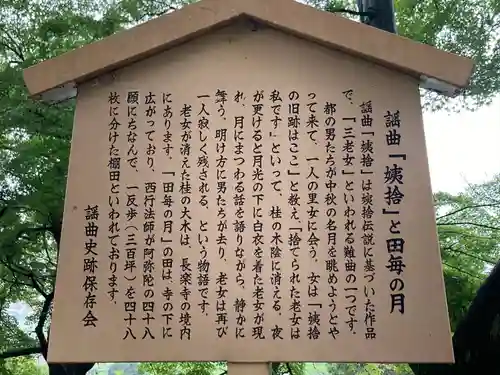 謡曲「姨捨」と田毎の月
謡曲「姨捨」は姨捨伝説に基づいた作品
で、「三老女」といわれる難曲の一つです。
都の男たちが中秋の名月を眺めようとや
って来て、一人の里女に会う。女は「姨捨
の旧跡はここ」と教え「捨てられた老女は
私です」といって、桂の木陰に消える。夜
が更けると月光の下に白衣を着た老女が現
れ、月にまつわる話を語りながら、静かに
舞う。明け方に男たちが去り、老女は再び
一人寂しく残される、という物語です。
老女が消えた桂の大木は、長楽寺の境内
にあります。「田毎の月」の田は、寺の下に
広がっており、西行法師が阿弥陀の四十八
願にちなんで、一反歩（三百坪）を四十八
枚に分けた棚田といわれております。
謡曲史跡保存会